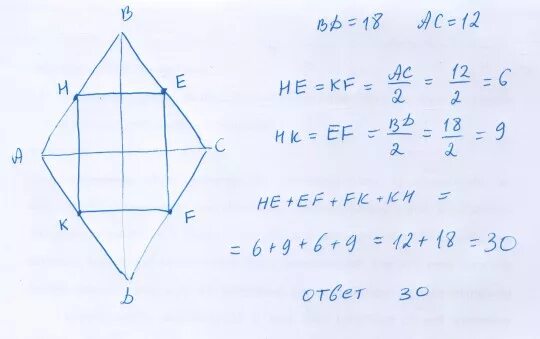 B
H
E
A
C
K
F
D
BD = 18 AC = 12
HE = KF = AC/2 = 12/2 = 6
HK = EF = BD/2 = 18/2 = 9
HE + EF + FK + KH =
= 6 + 9 + 6 + 9 = 12 + 18 = 30
ответ 30